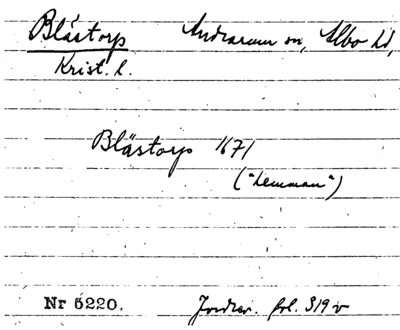 Blåstorp Andrarum sn, Albo hd,
Krist. l.
Blåstorp 1671
("hemman")
Nr 5220. Jordrev. fol. 319 v